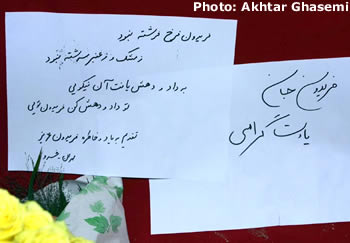 Photo: Akhtar Ghasemi
فریدون فرخ فرشته نبود
ز مشک و ز عنبر سرشته نبود
به داد و دهش یافت آن نیکویی
تو داد و دهش کن فریدون تویی
تقدیم به یاد و خاطره فریدون عزیز
فریدون جان
یادت گرامی